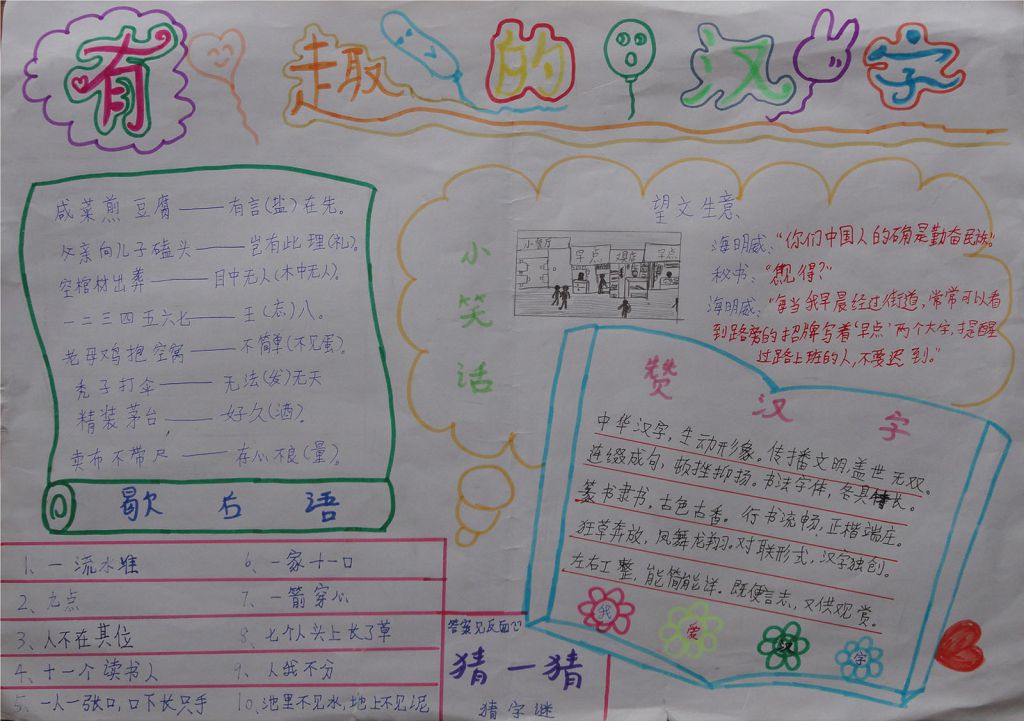 有趣的汉字
咸菜煎豆腐——有言(盐)在先。
父亲向儿子磕头——岂有此理(礼)。
空棺材出葬——目中无人(木中无人)。
一二三四五六七——王(忘)八。
老母鸡抱空窝——不简单(不见蛋)。
秃子打伞——无法(发)无天
精装茅台——好久(酒)。
卖布不带尺——存心不良(量)。
歇后语
小笑话
望文生意、
小餐厅
早点
早点
海明威:“你们中国人的确是勤奋民族”
秘书:“觊得?”
海明威:“每当我早晨经过街道,常常可以看
到路旁的招牌写着‘早点’两个大字,提醒
过路上班的人,不要迟到。”
赞汉字
中华汉字,生动形象。传播文明,盖世无双。
连缀成句,顿挫抑扬。书法字体,各具特长。
篆书隶书,古色古香。行书流畅,正楷端庄。
狂草奔放,凤舞龙翔。对联形式,汉字独创。
左右工整,能简能详。既便言志,又供观赏。
我爱汉字
1、一流水准
2、九点
3、人不在其位
4、十一个读书人
5、一人一张口,口下长只手
6、一家十一口
7、一箭穿心
8、七个人头上长了草
9、人我不分
10、池里不见水,地上不见泥
答案见反面
猜一猜
猜字谜